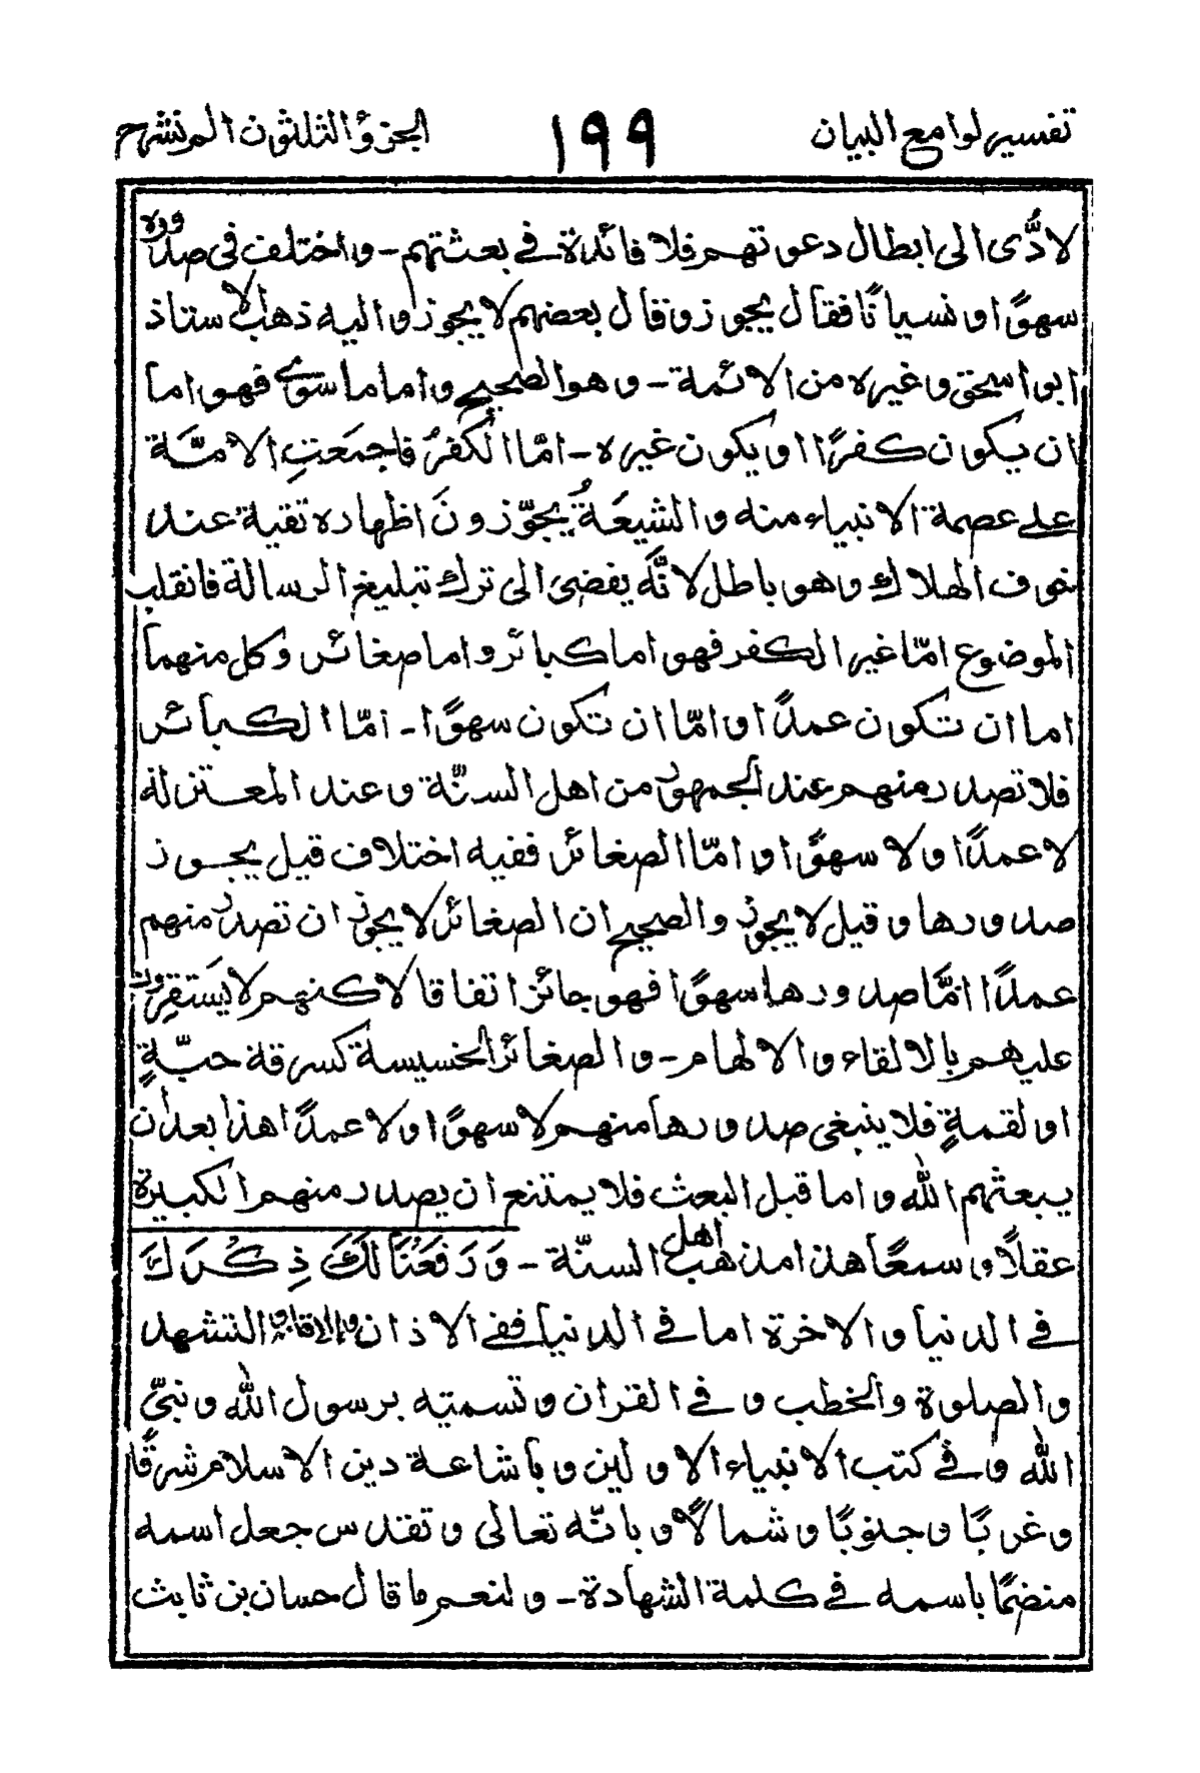 تفسير لوامع البيان ١٩٩ الجزؤ الثلثون المرنشرح
لادُّى الى ابطال دعوتهم فلا فائدة في بعثتهم - واختلف فى صدوره
سهوًا او نسيانًا فقال يجوز وقال بعضهم لا يجوز واليه ذهب الاستاذ
ابو اسحٰق وغيره من الائمة - وهو الصحيح واما ما سوى فهو اما
ان يكون كفرًا او يكون غيره - امّا الكفرُ فاجمَعتِ الامّة
على عصمة الانبياء منه والشيعَةُ يجوّزونَ اظهاره تقية عند
خوف الهلاك وهو باطل لانَّه يفضى الى ترك تبليغ الرسالة فانقلب
الموضوع امّا غير الكفر فهو اما كبائر واما صغائر وكل منهما
اما ان تكون عمدًا او امّا ان تكون سهوًا - امّا الكبائر
فلا تصدر منهم عند الجمهور من اهل السنّة وعند المعتزلة
لا عمدًا ولا سهوًا او امّا الصغائر ففيه اختلاف قيل يجوز
صدورها وقيل لا يجوز والصحيح ان الصغائر لا يجوز ان تصدر منهم
عمدًا امَّا صدورها سهوًا فهو جائز اتفاقا لاكنهم لا يَستقِرون
عليهم بالالقاء والالهام - والصغائر الخسيسة كسرقة حبّةٍ
او لقمةٍ فلا ينبغى صدورها منهم لا سهوًا ولا عمدًا هذا بعد ان
يبعثهم الله واما قبل البعث فلا يمتنع ان يصدر منهم الكبيرة
عقلًا وسمعًا هذا مذهب اهل السنّة - وَرَفَعْنَا لَكَ ذِكْرَكَ
في الدنيا والاخرة اما في الدنيا ففي الاذان والاقامة والتشهد
والصلوة والخطب وفي القران وتسميته برسول الله ونبيّ
الله وفي كتب الانبياء الاولين وباشاعة دين الاسلام شرقًا
وغربًا وجنوبًا وشمالًا وبانّه تعالى وتقدس جعل اسمه
منضمًا باسمه في كلمة الشهادة - ولنعم ما قال حسان بن ثابت